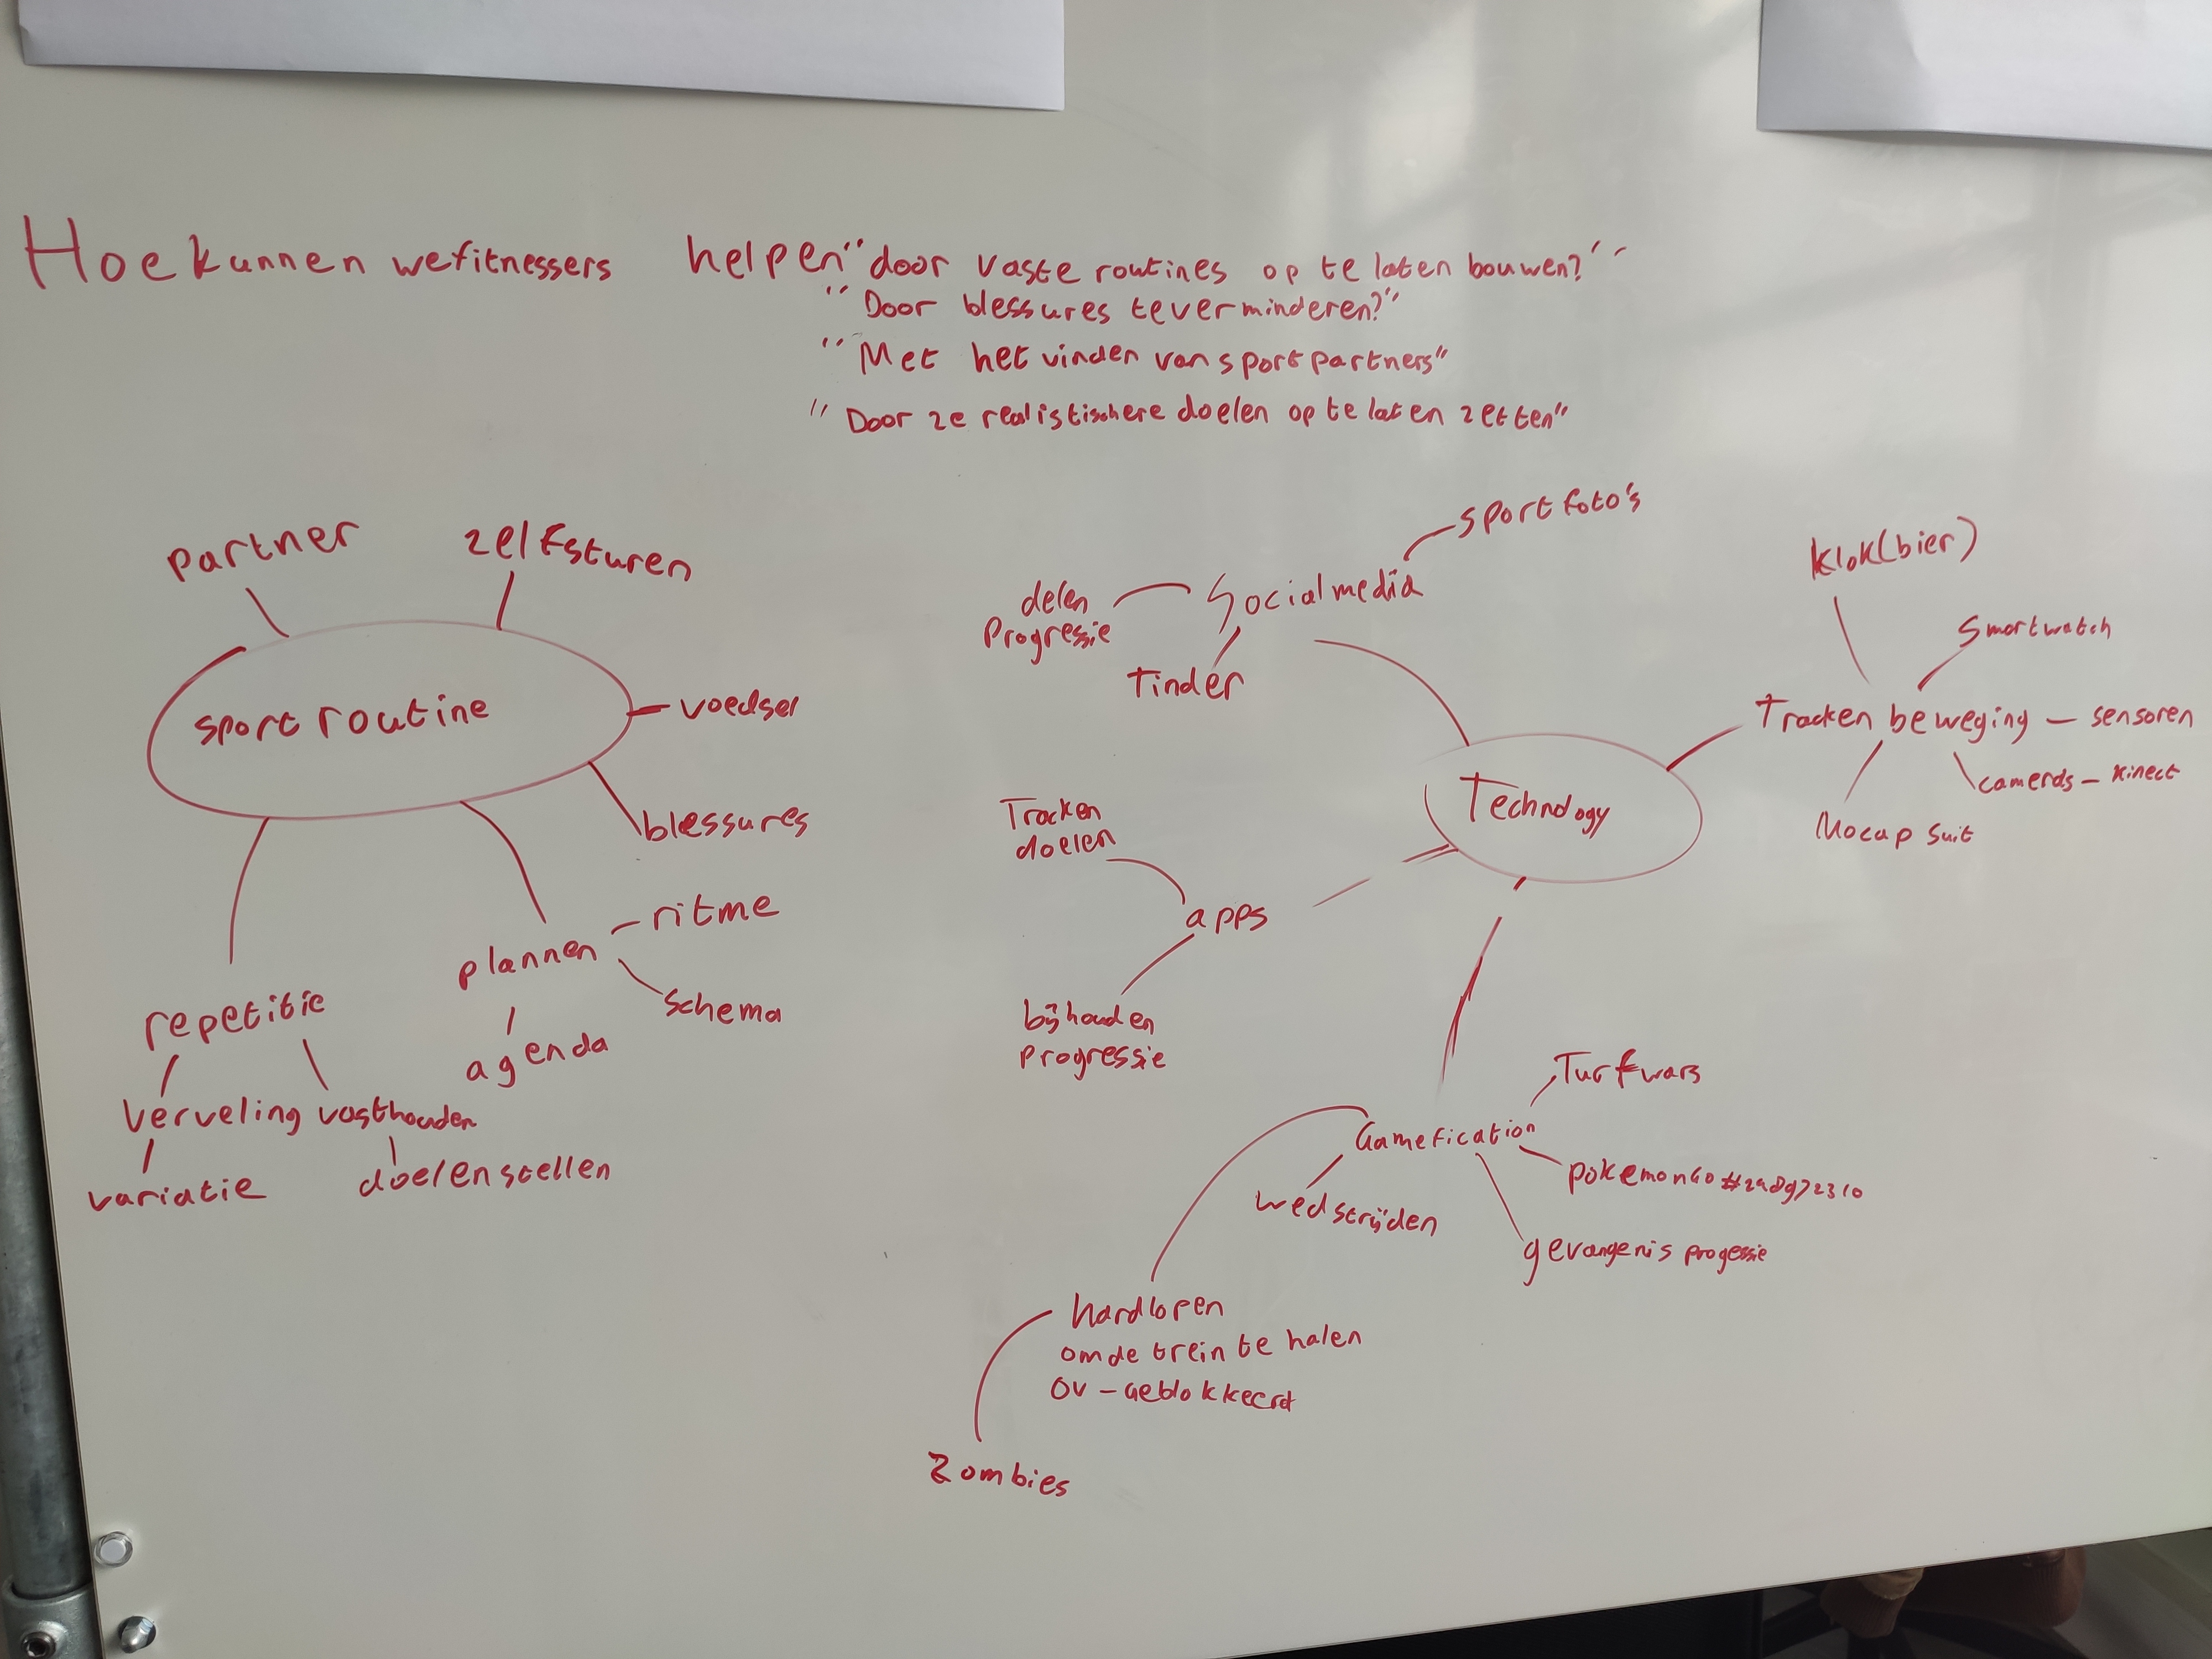 Hoe kunnen we fitnessers helpen "door vaste routines op te laten bouwen?"
"Door blessures te verminderen?"
"Met het vinden van sport partners"
"Door ze realistischere doelen op te laten zetten"
partner
zelfsturen
sport routine
voedsel
blessures
plannen
ritme
schema
agenda
repetitie
verveling
vasthouden
variatie
doelen stellen
sport foto's
Social media
delen
Progressie
Tinder
Technology
klok(bier)
Smartwatch
Tracken beweging - sensoren
cameras - kinect
Mocap suit
Tracken
doelen
apps
bijhouden
progressie
Gamefication
Turf wars
pokemon Go
gevangenis progessie
wedstrijden
hardlopen
om de trein te halen
OV - Geblokkeerd
Zombies